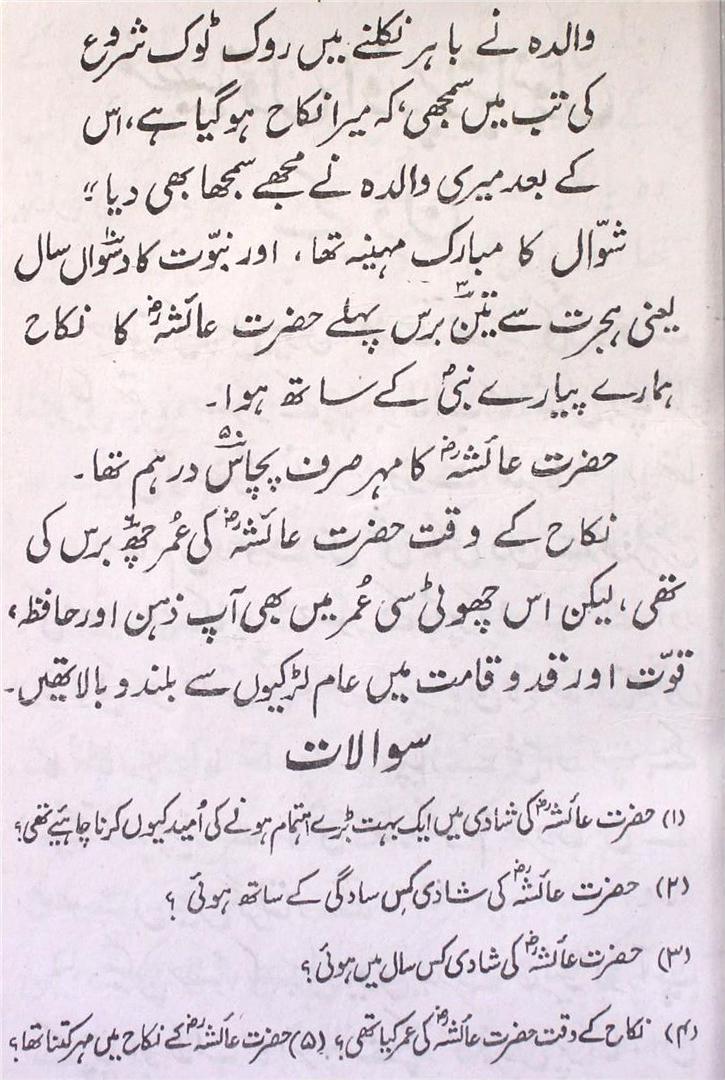 والدہ نے باہر نکلنے میں روک ٹوک شروع
کی تب میں سمجھی، کہ میرا نکاح ہوگیا ہے، اس
کے بعد میری والدہ نے مجھے سمجھا بھی دیا"
شوّال کا مبارک مہینہ تھا، اور نبوّت کا دسواں۱۰ سال
یعنی ہجرت سے تین۳ برس پہلے حضرت عائشہؓ کا نکاح
ہمارے پیارے نبیؐ کے ساتھ ہوا۔
حضرت عائشہؓ کا مہر صرف پچاس۵۰ درہم تھا۔
نکاح کے وقت حضرت عائشہؓ کی عُمر چھ۶ برس کی
تھی، لیکن اس چھوٹی سی عُمر میں بھی آپ ذہن اور حافظہ،
قوّت اور قد و قامت میں عام لڑکیوں سے بلند و بالا تھیں۔
سوالات
(۱) حضرت عائشہؓ کی شادی میں ایک بہت بڑے اہتمام ہونے کی اُمید کیوں کرنا چاہیئے تھی؟
(۲) حضرت عائشہؓ کی شادی کس سادگی کے ساتھ ہوئی؟
(۳) حضرت عائشہؓ کی شادی کس سال میں ہوئی؟
(۴) نکاح کے وقت حضرت عائشہؓ کی عمر کیا تھی؟ (۵) حضرت عائشہؓ کے نکاح میں مہر کتنا تھا؟